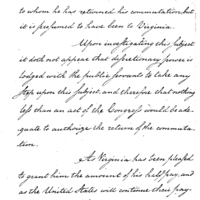 to whom he has returned his commutation but
it is presumed to have been to Virginia.
Upon investigating this subject
it doth not appear that discretionary power is
lodged with the public servant to take any
step upon this subject, and therefore that nothing
less than an act of the Congress would be ade-
quate to authorize the return of the commuta-
tion.
As Virginia has been pleased
to grant him the amount of his half pay, and
as the United States will continue their pay-